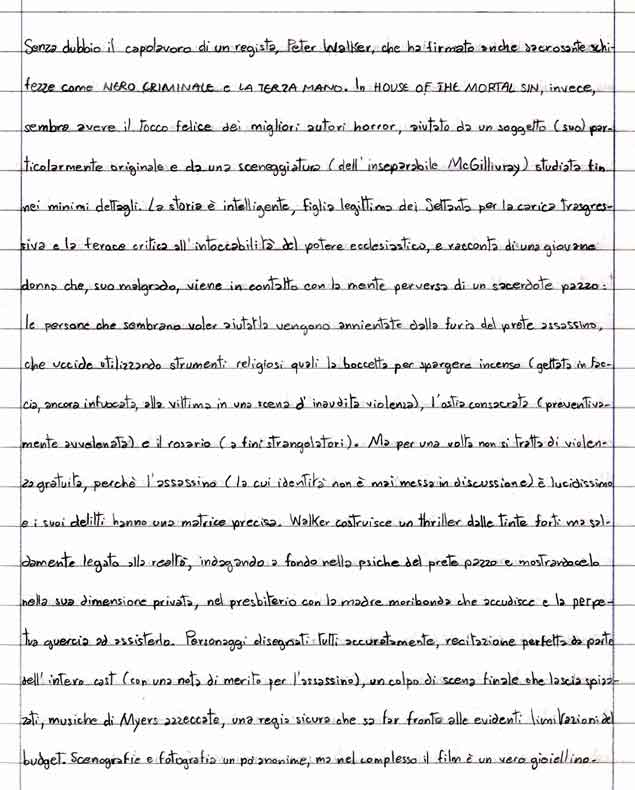 Senza dubbio il capolavoro di un regista, Peter Walker, che ha firmato anche sacrosante schi-
fezze come NERO CRIMINALE e LA TERZA MANO. In HOUSE OF THE MORTAL SIN, invece,
sembra avere il tocco felice dei migliori autori horror, aiutato da un soggetto (suo) par-
ticolarmente originale e da una sceneggiatura (dell'inseparabile McGillivray) studiata fin
nei minimi dettagli. La storia è intelligente, figlia legittima dei Settanta per la carica trasgres-
siva e la feroce critica all'intoccabilità del potere ecclesiastico, e racconta di una giovane
donna che, suo malgrado, viene in contatto con la mente perversa di un sacerdote pazzo:
le persone che sembrano voler aiutarla vengono annientate dalla furia del prete assassino,
che uccide utilizzando strumenti religiosi quali la boccetta per spargere incenso (gettata in fac-
cia, ancora infuocata, alla vittima in una scena d'inaudita violenza), l'ostia consacrata (preventiva-
mente avvelenata) e il rosario (a fini strangolatori). Ma per una volta non si tratta di violen-
za gratuita, perchè l'assassino (la cui identità non è mai messa in discussione) è lucidissimo
e i suoi delitti hanno una matrice precisa. Walker costruisce un thriller dalle tinte forti ma sal-
damente legato alla realtà, indagando a fondo nella psiche del prete pazzo e mostrandocelo
nella sua dimensione privata, nel presbiterio con la madre moribonda che accudisce e la perpe-
tua guercia ad assisterlo. Personaggi disegnati tutti accuratamente, recitazione perfetta da parte
dell'intero cast (con una nota di merito per l'assassino), un colpo di scena finale che lascia spiaz-
zati, musiche di Myers azzeccate, una regia sicura che sa far fronte alle evidenti limitazioni del
budget. Scenografie e fotografia un po' anonime, ma nel complesso il film è un vero gioiellino.